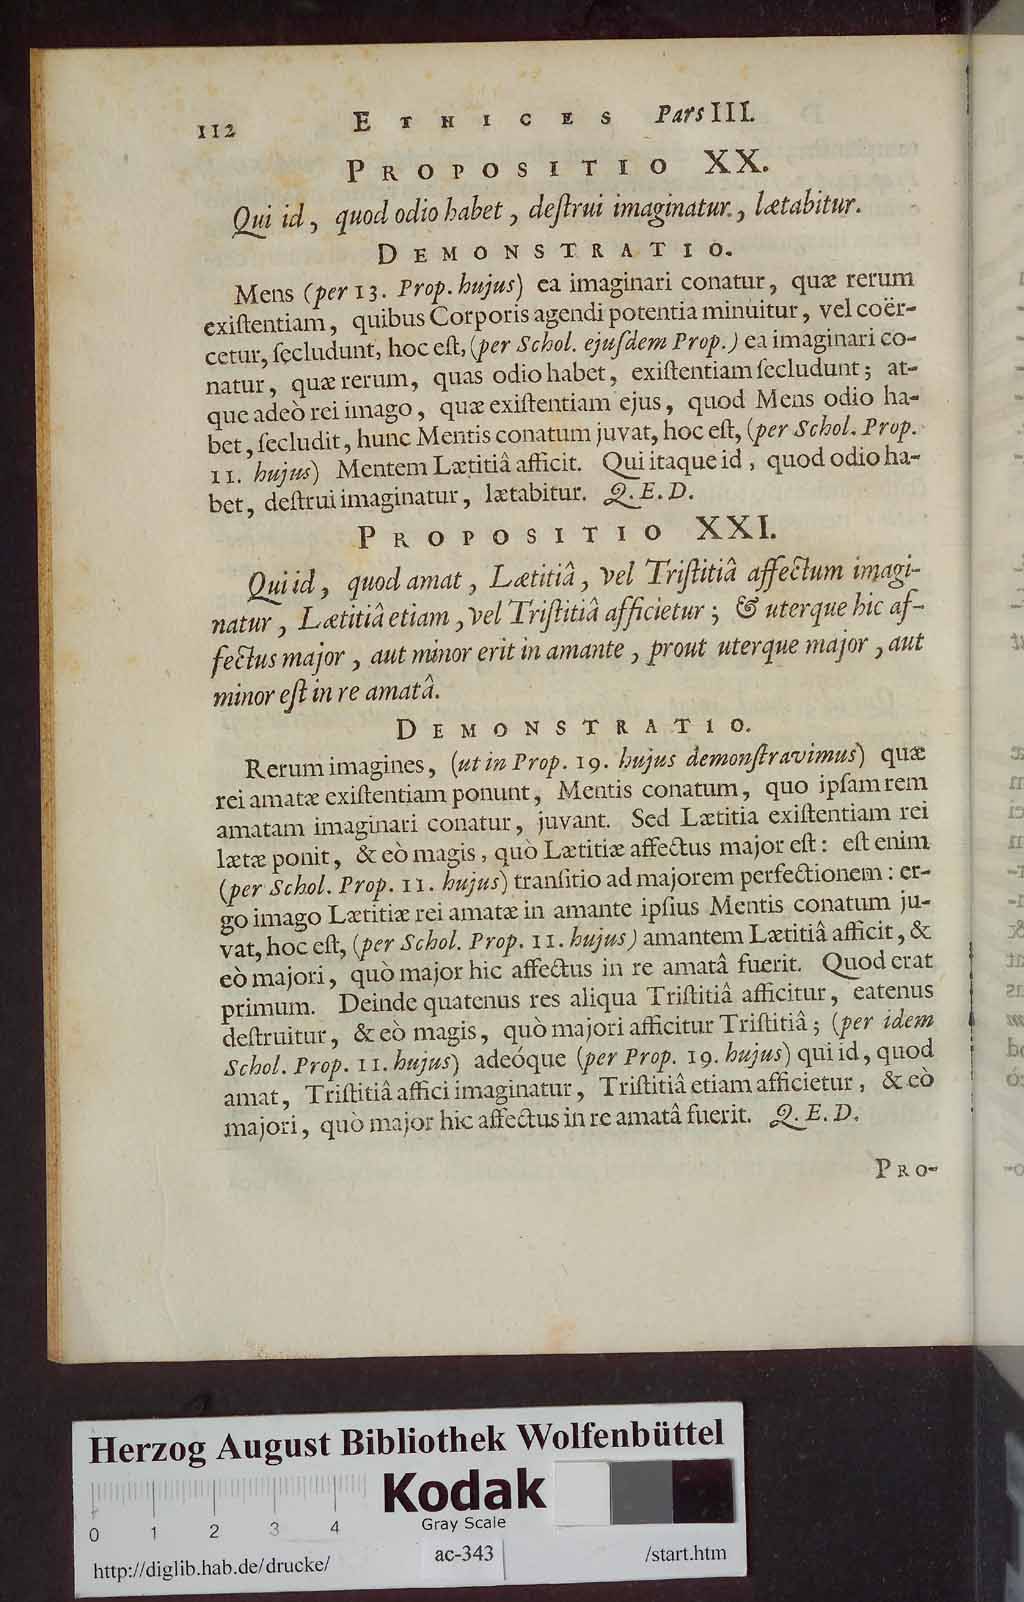 112 ETHICES Pars III.
PROPOSITIO XX.
Qui id, quod odio habet, deſtrui imaginatur, lætabitur.
DEMONSTRATIO.
Mens (per 13. Prop. hujus) ea imaginari conatur, quæ rerum
exiſtentiam, quibus Corporis agendi potentia minuitur, vel coër-
cetur, ſecludunt, hoc eſt, (per Schol. ejuſdem Prop.) ea imaginari co-
natur, quæ rerum, quas odio habet, exiſtentiam ſecludunt; at-
que adeò rei imago, quæ exiſtentiam ejus, quod Mens odio ha-
bet, ſecludit, hunc Mentis conatum juvat, hoc eſt, (per Schol. Prop.
11. hujus) Mentem Lætitiâ afficit. Qui itaque id, quod odio ha-
bet, deſtrui imaginatur, lætabitur. Q.E.D.
PROPOSITIO XXI.
Qui id, quod amat, Lætitiâ, vel Triſtitiâ affectum imagi-
natur, Lætitiâ etiam, vel Triſtitiâ afficietur; & uterque hic af-
fectus major, aut minor erit in amante, prout uterque major, aut
minor eſt in re amatâ.
DEMONSTRATIO.
Rerum imagines, (ut in Prop. 19. hujus demonſtravimus) quæ
rei amatæ exiſtentiam ponunt, Mentis conatum, quo ipſam rem
amatam imaginari conatur, juvant. Sed Lætitia exiſtentiam rei
lætæ ponit, & eò magis, quò Lætitiæ affectus major eſt: eſt enim
(per Schol. Prop. 11. hujus) tranſitio ad majorem perfectionem: er-
go imago Lætitiæ rei amatæ in amante ipſius Mentis conatum ju-
vat, hoc eſt, (per Schol. Prop. 11. hujus) amantem Lætitiâ afficit, &
eò majori, quò major hic affectus in re amatâ fuerit. Quod erat
primum. Deinde quatenus res aliqua Triſtitiâ afficitur, eatenus
deſtruitur, & eò magis, quò majori afficitur Triſtitiâ; (per idem
Schol. Prop. 11. hujus) adeóque (per Prop. 19. hujus) qui id, quod
amat, Triſtitiâ affici imaginatur, Triſtitiâ etiam afficietur, & eò
majori, quò major hic affectus in re amatâ fuerit. Q.E.D.
PRO-
Herzog August Bibliothek Wolfenbüttel
Kodak
Gray Scale
0 1 2 3 4
http://diglib.hab.de/drucke/ ac-343 /start.htm